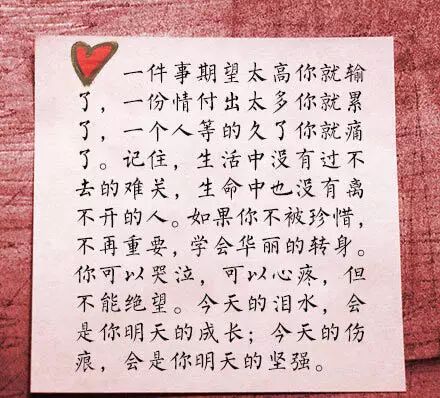 一件事期望太高你就输
了，一份情付出太多你就累
了，一个人等的久了你就痛
了。记住，生活中没有过不
去的难关，生命中也没有离
不开的人。如果你不被珍惜，
不再重要，学会华丽的转身。
你可以哭泣，可以心疼，但
不能绝望。今天的泪水，会
是你明天的成长；今天的伤
痕，会是你明天的坚强。